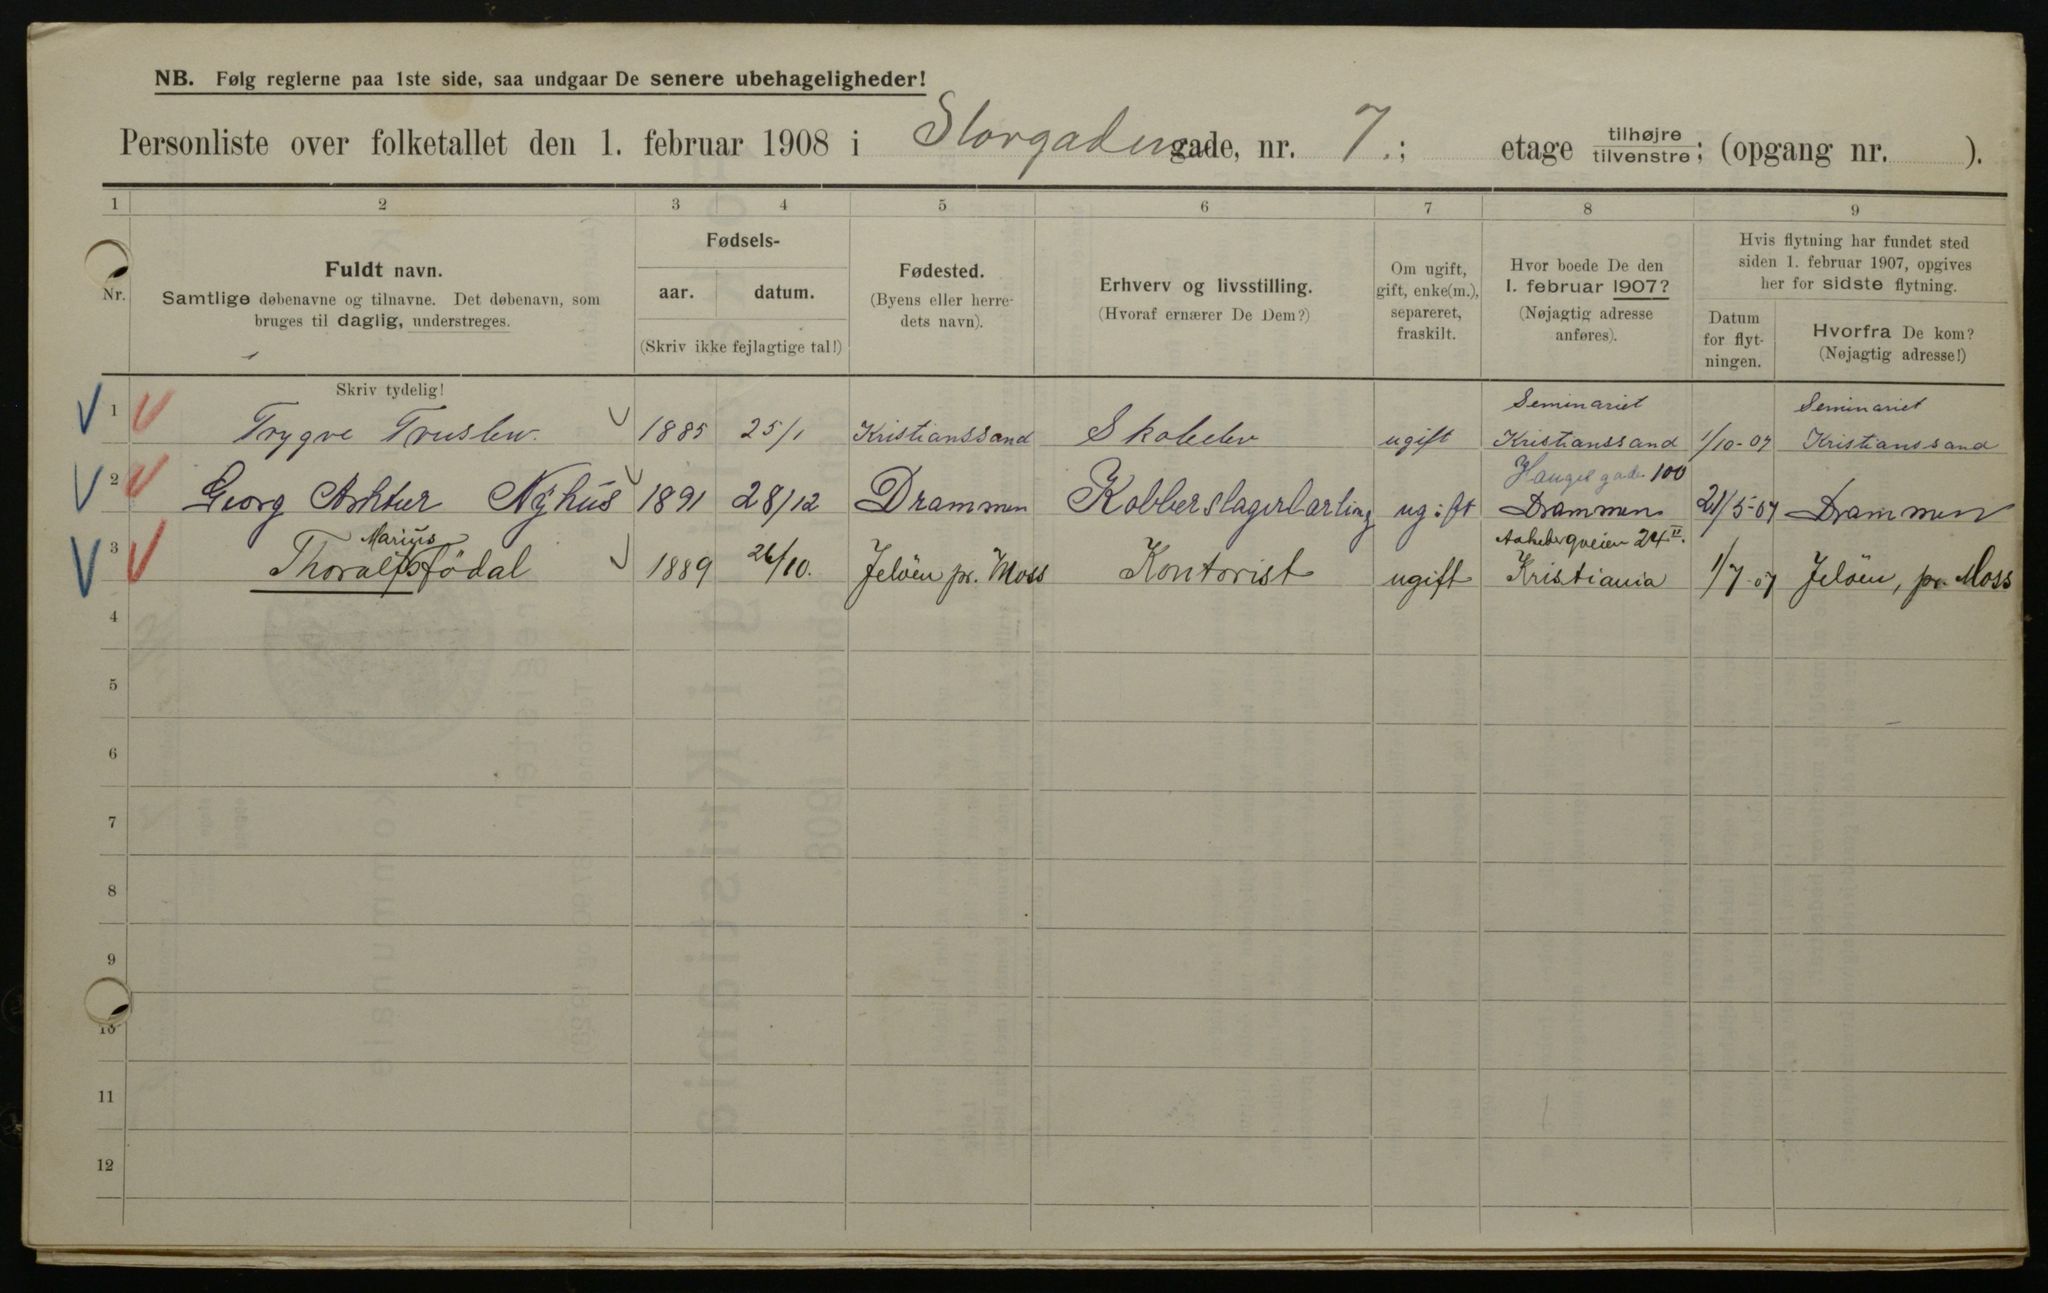 NB. Følg reglerne paa 1ste side, saa undgaar De senere ubehageligheder!
Personliste over folketallet den 1. februar 1908 i Storgaden gade, nr. 7.; etage tilhøjre tilvenstre; (opgang nr. ).
1 2 3 4 5 6 7 8 9
Nr.
Fuldt navn.
Samtlige døbenavne og tilnavne. Det døbenavn, som
bruges til daglig, understreges.
Skriv tydelig!
Fødsels-
aar. datum.
(Skriv ikke fejlagtige tal!)
Fødested.
(Byens eller herre-
dets navn).
Erhverv og livsstilling.
(Hvoraf ernærer De Dem?)
Om ugift,
gift, enke(m.),
separeret,
fraskilt.
Hvor boede De den
1. februar 1907?
(Nøjagtig adresse
anføres).
Hvis flytning har fundet sted
siden 1. februar 1907, opgives
her for sidste flytning.
Datum
for flyt-
ningen.
Hvorfra De kom?
(Nøjagtig adresse!)
Seminariet Seminariet
1 Trygve Truslew. 1885 25/1 Kristianssand Skoelev ugift Kristianssand 1/10-07 Kristianssand
Hauges gade 100
2 Georg Arhtur Nyhus 1891 28/12 Drammen Kobberslagerlærling ugift Drammen 21/5-07 Drammen
Marius Aakebergveien 24 II.
3 Thoralf Stødal 1889 26/10. Jeløen pr. Moss Kontorist ugift Kristiania 1/7-07 Jeløen, pr. Moss
4
5
6
7
8
9
10
11
12